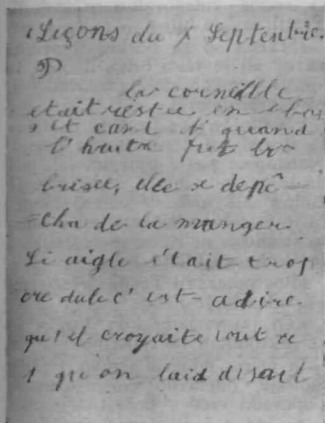 Leçons du x Septembre.
D
la corneille
etait restee en bas
s et cant t quand
l'huitre fut
brisee, elle se depê-
=cha de la manger
Li aigle était trop
credule c'est-adire
qu'il croyaite tout ce
qu'on laid disait